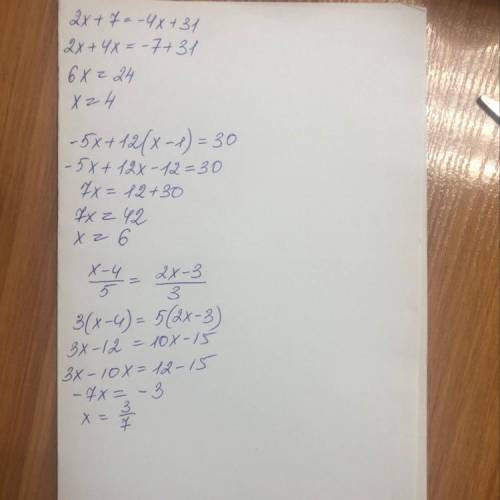 2x+7=-4x+31
2x+4x=-7+31
6x=24
x=4
-5x+12(x-1)=30
-5x+12x-12=30
7x=12+30
7x=42
x=6
x-4/5 = 2x-3/3
3(x-4)=5(2x-3)
3x-12=10x-15
3x-10x=12-15
-7x=-3
x=3/7